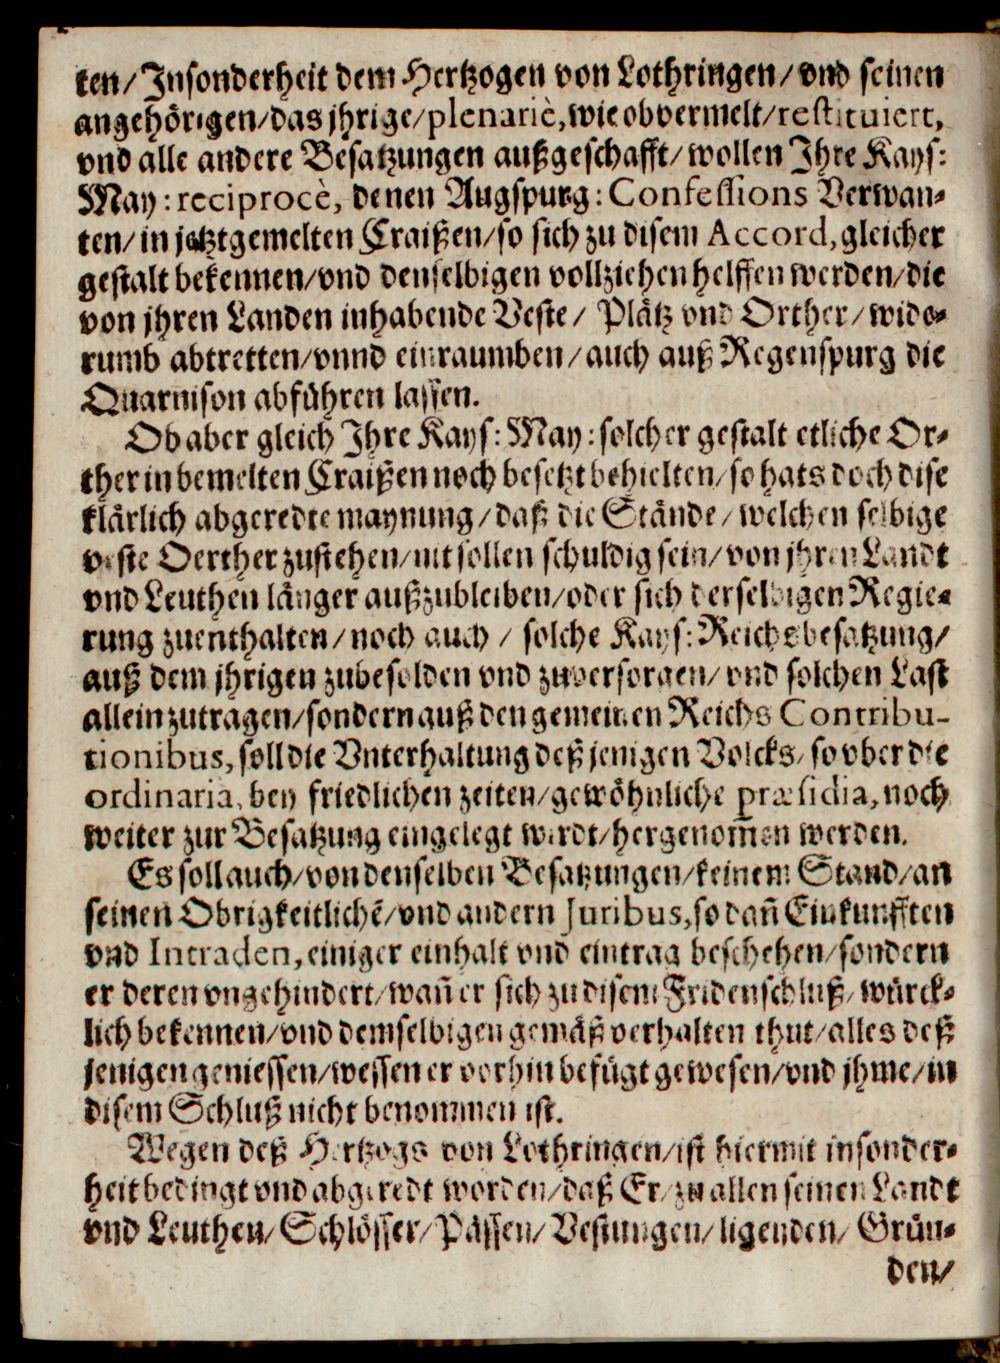 ken/Insonderheit dem Hertzogen von Lothringen/vnd seinen
angehörigen/das jhrige/plenariè, wie obvermelt/restituiert,
vnd alle andere Besatzungen außgeschafft/wollen Ihre Kays:
May: reciprocè, denen Augspurg: Confessions Verwan-
ten/in jetztgemelten Craißen/so sich zu disem Accord, gleicher
gestalt bekennen/vnd denselbigen vollziehen helffen werden/die
von jhren Landen inhabende Veste/ Plätz vnd Orther/wide-
rumb abtretten/vnnd einraumben/auch auß Regenspurg die
Quarnison abführen lassen.
Ob aber gleich Ihre Kays: May: solcher gestalt etliche Or-
ther in bemelten Craißen noch besetzt behielten/so hats doch dise
klärlich abgeredte maynung/daß die Stände/welchen selbige
veste Oerther zustehen/nit sollen schuldig sein/von jhren Landt
vnd Leuthen länger außzubleiben/oder sich derselbigen Regie-
rung zuenthalten/noch auch/ solche Kays: Reichsbesatzung/
auß dem jhrigen zubesolden vnd zuversorgen/vnd solchen Last
allein zutragen/sondern auß den gemeinen Reichs Contribu-
tionibus, soll die Vnterhaltung deß jenigen Volcks/so vber die
ordinaria, bey friedlichen zeiten/gewöhnliche præsidia, noch
weiter zur Besatzung eingelegt wirdt/hergenom̃en werden.
Es soll auch/von denselben Besatzungen/keinem Stand/an
seinen Obrigkeitlichẽ/vnd andern Juribus, so dañ Einkunfften
vnd Intraden, einiger einhalt vnd eintrag beschehen/sondern
er deren vngehindert/wañ er sich zu disem Fridenschluß/würck-
lich bekennen/vnd demselbigen gemäß verhalten thut/alles deß
jenigen geniessen/wessen er vorhin befügt gewesen/vnd jhme/in
disem Schluß nicht benommen ist.
Wegen deß Hertzogs von Lothringen/ist hiermit insonder-
heit bedingt vnd abgeredt worden/daß Er/zu allen seinen Landt
vnd Leuthen/Schlösser/Pässen/Vestungen/ligenden/Grün-
den/